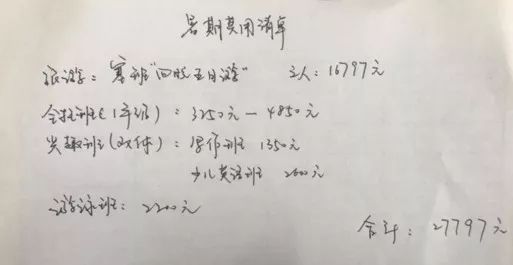 暑期费用清单
旅游：寒班"四晚五日游" 3人：16797元
全托班(1年级)：3250元—4850元
兴趣班(文体)：写作班 1350元
少儿英语班 2600元
游泳班：2200元
合计：27797元